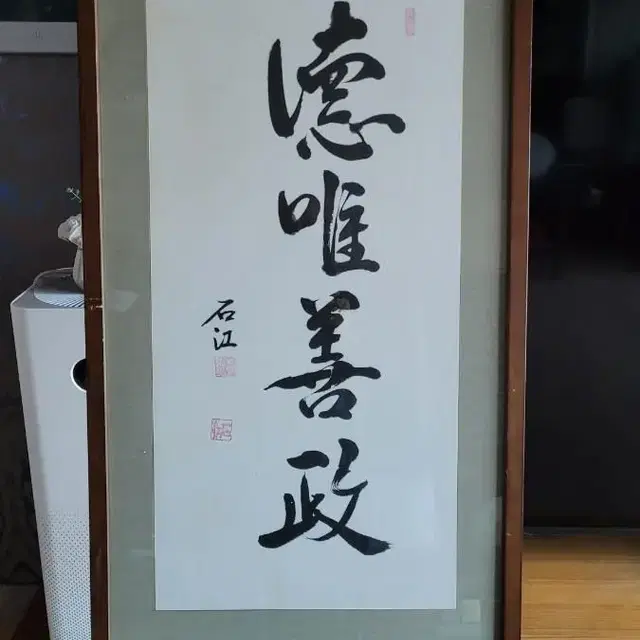 德唯善政
石江